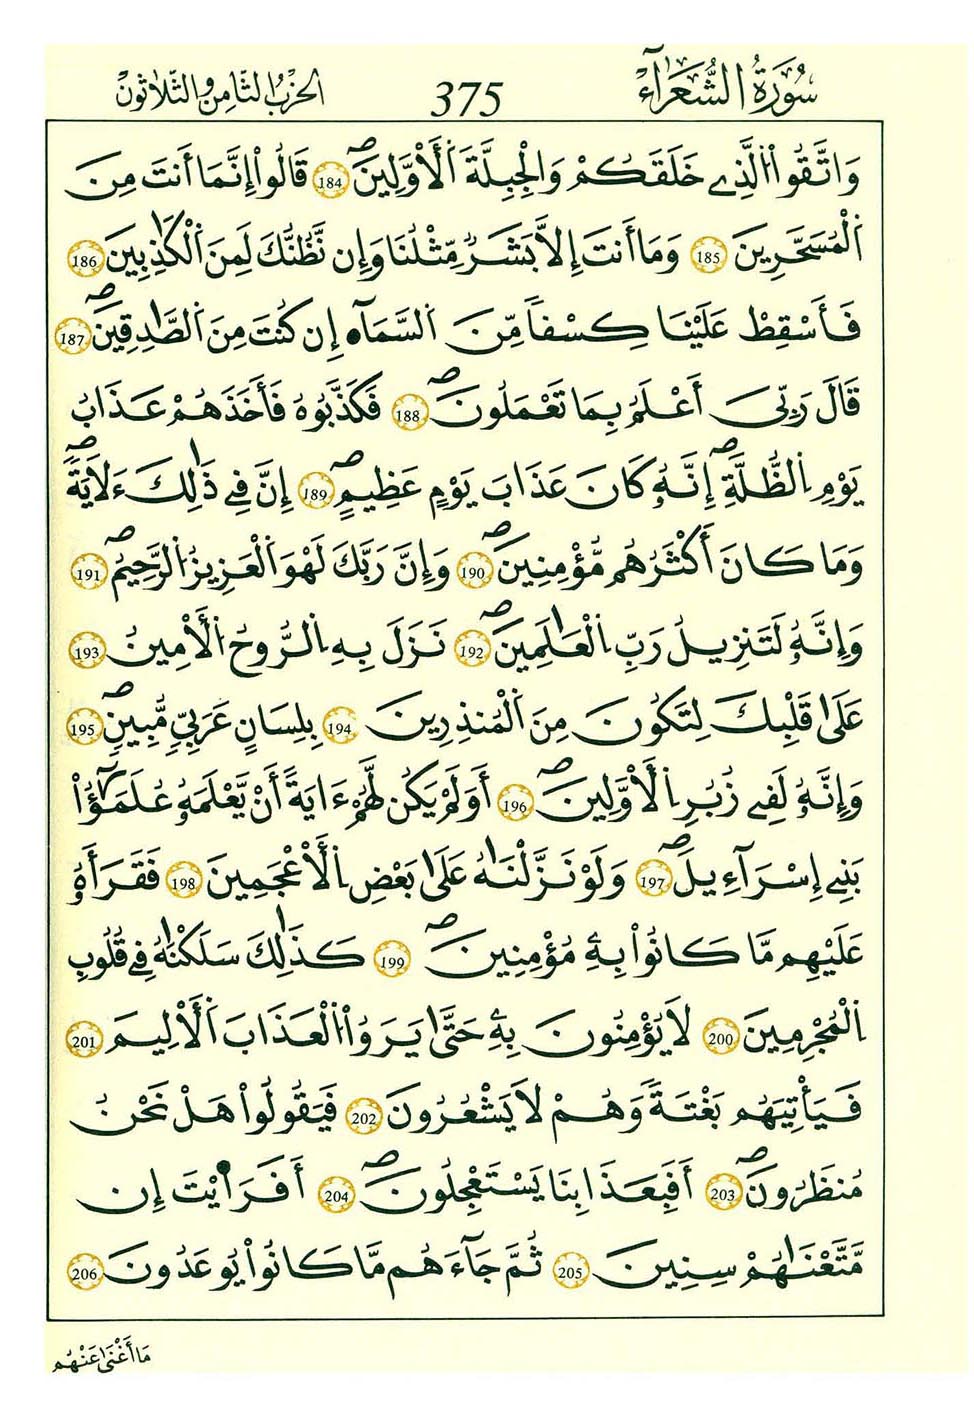 سُورَةُ الشُّعَرَآءِ 375 الحِزْبُ الثَّامِنُ وَالثَّلَاثُونَ
وَاتَّقُوا۟ اُ۬لَّذِے خَلَقَكُمْ وَالْجِبِلَّةَ اَ۬لْأَوَّلِينَۖ 184 قَالُوٓا۟ إِنَّمَا أَنتَ مِنَ
اَ۬لْمُسَحَّرِينَ 185 وَمَا أَنتَ إِلَّا بَشَرٌ مِّثْلُنَا وَإِن نَّظُنُّكَ لَمِنَ اَ۬لْكَٰذِبِينَ 186
فَأَسْقِطْ عَلَيْنَا كِسْفاً مِّنَ اَ۬لسَّمَآءِ ا۪ن كُنتَ مِنَ اَ۬لصَّٰدِقِينَۖ 187
قَالَ رَبِّىَ أَعْلَمُ بِمَا تَعْمَلُونَۖ 188 فَكَذَّبُوهُ فَأَخَذَهُمْ عَذَابُ
يَوْمِ اِ۬لظُّلَّةِۖ إِنَّهُۥ كَانَ عَذَابَ يَوْمٍ عَظِيمٍۖ 189 إِنَّ فِے ذَٰلِكَ ءَلَايَةًۖ
وَمَا كَانَ أَكْثَرُهُم مُّؤْمِنِينَۖ 190 وَإِنَّ رَبَّكَ لَهْوَ اَ۬لْعَزِيزُ اُ۬لرَّحِيمُۖ 191
وَإِنَّهُۥ لَتَنزِيلُ رَبِّ اِ۬لْعَٰلَمِينَۖ 192 نَزَلَ بِهِ اِ۬لرُّوحُ اُ۬لْأَمِينُ 193
عَلَىٰ قَلْبِكَ لِتَكُونَ مِنَ اَ۬لْمُنذِرِينَ 194 بِلِسَانٍ عَرَبِىٍّ مُّبِينٍۖ 195
وَإِنَّهُۥ لَفِے زُبُرِ اِ۬لْأَوَّلِينَۖ 196 أَوَلَمْ يَكُن لَّهُمْ ءَايَةً أَنْ يَّعْلَمَهُۥ عُلَمَٰٓؤُا۟
بَنِے إِسْرَآءِيلَۖ 197 وَلَوْ نَزَّلْنَٰهُ عَلَىٰ بَعْضِ اِ۬لْأَعْجَمِينَ 198 فَقَرَأَهُۥ
عَلَيْهِم مَّا كَانُوا۟ بِهِۦ مُؤْمِنِينَۖ 199 كَذَٰلِكَ سَلَكْنَٰهُ فِے قُلُوبِ
اِ۬لْمُجْرِمِينَ 200 لَا يُؤْمِنُونَ بِهِۦ حَتَّىٰ يَرَوُا۟ اُ۬لْعَذَابَ اَ۬لْأَلِيمَ 201
فَيَأْتِيَهُم بَغْتَةً وَهُمْ لَا يَشْعُرُونَ 202 فَيَقُولُوا۟ هَلْ نَحْنُ
مُنظَرُونَۖ 203 أَفَبِعَذَابِنَا يَسْتَعْجِلُونَۖ 204 أَفَرَٰ۬يْتَ إِن
مَّتَّعْنَٰهُمْ سِنِينَ 205 ثُمَّ جَآءَهُم مَّا كَانُوا۟ يُوعَدُونَ 206
مَا أَغْنَىٰ عَنْهُم